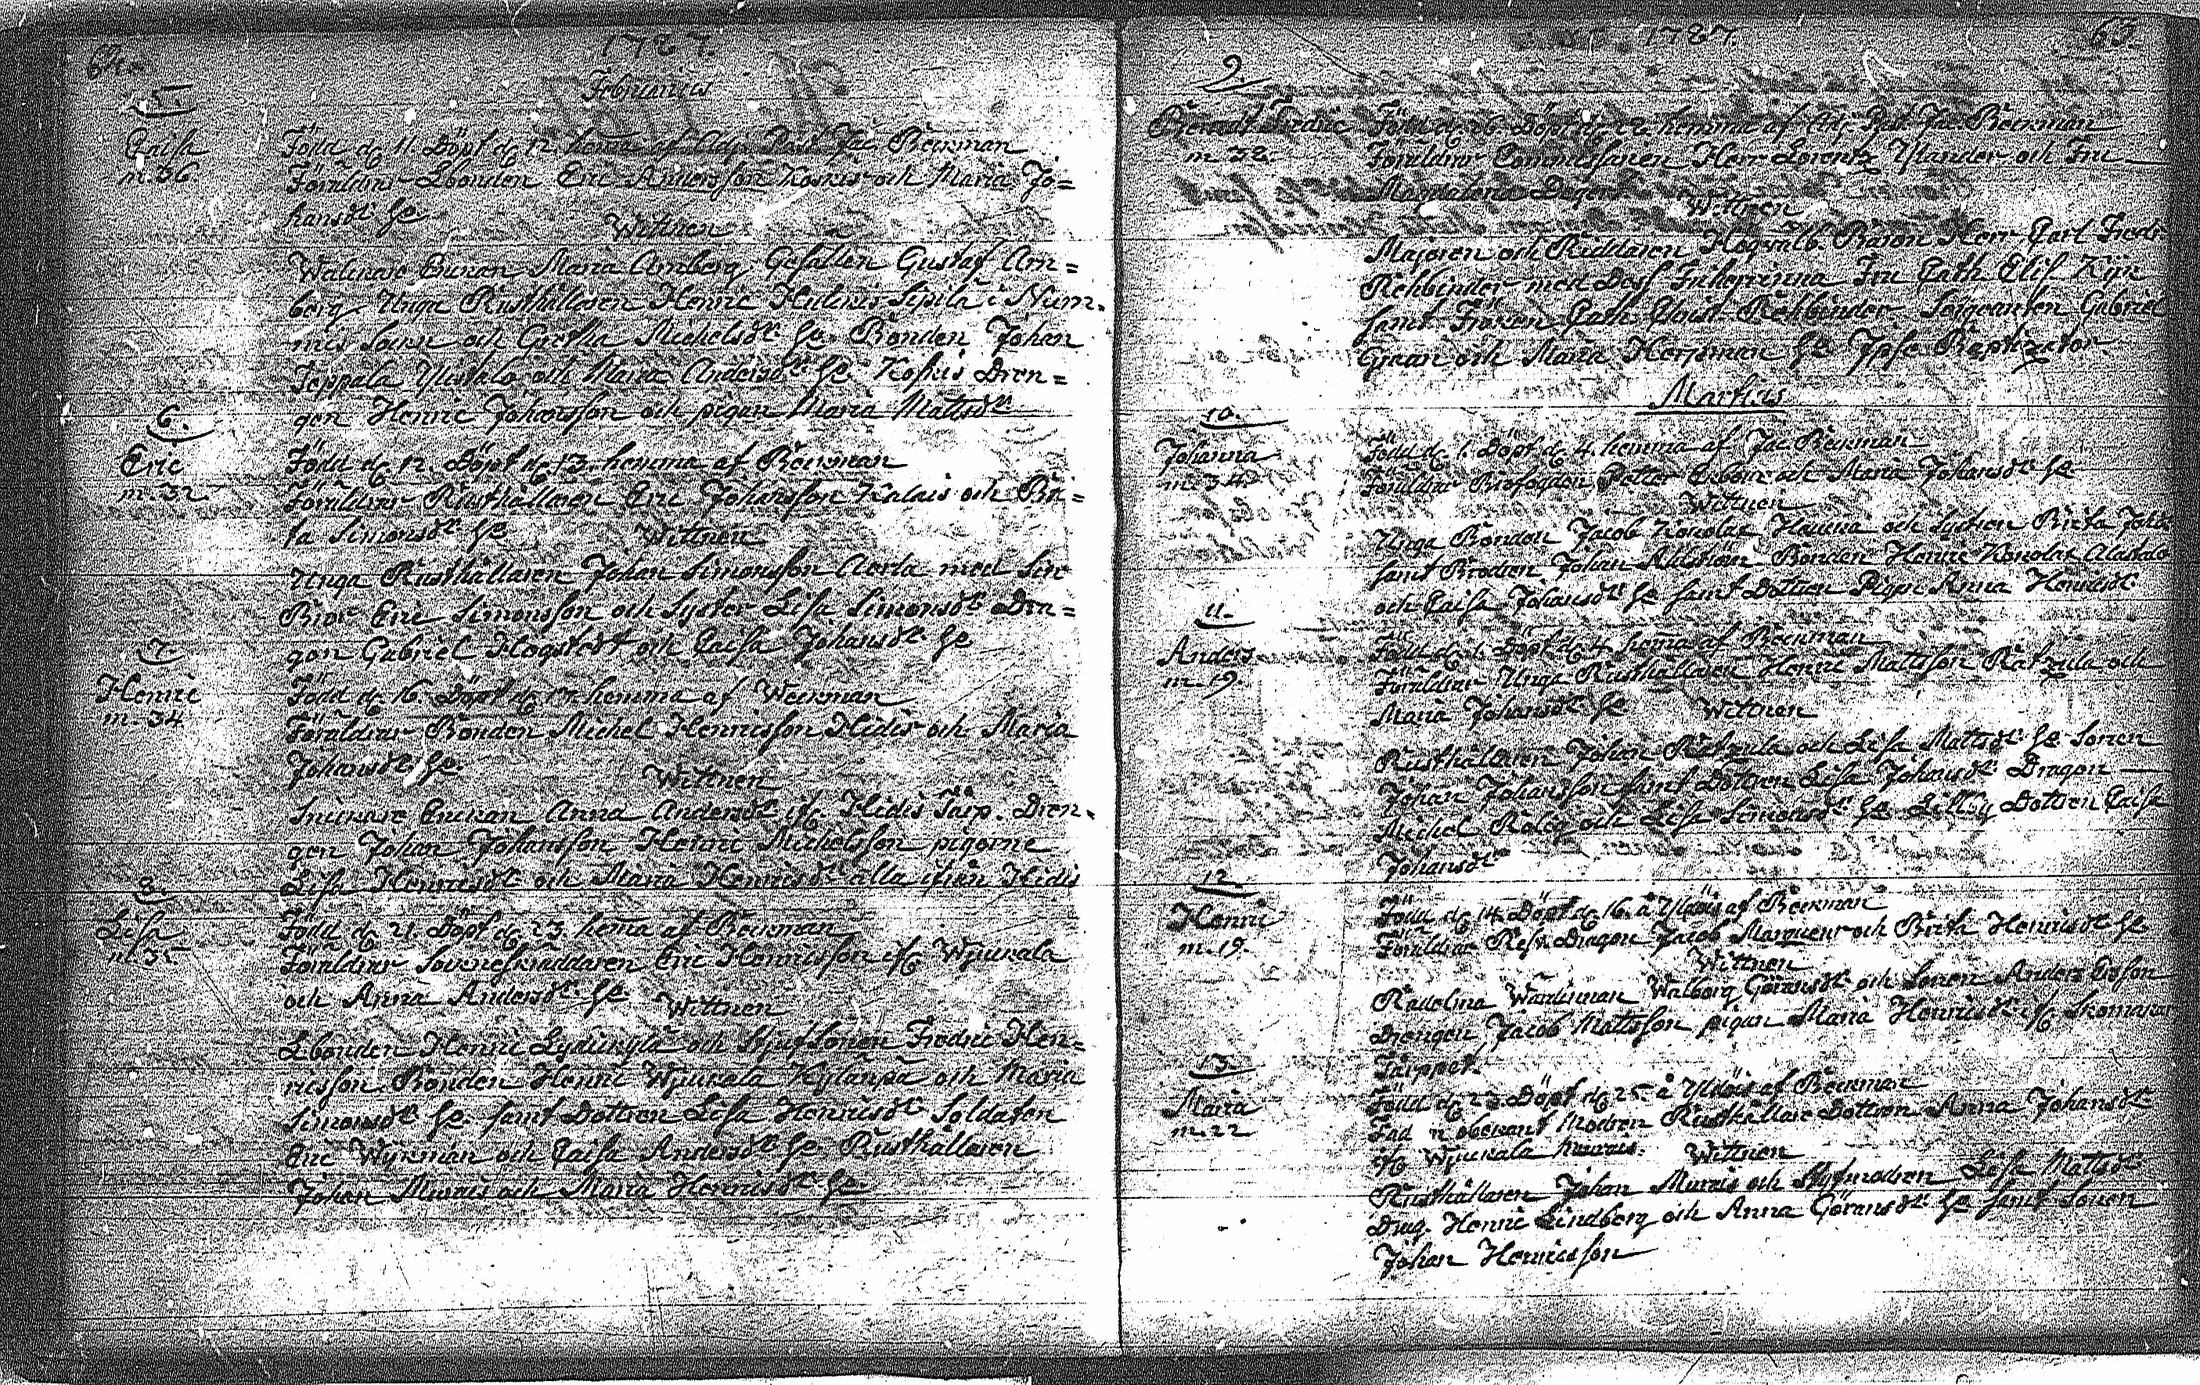 64.
1787.
Februarius
5.
Caisa
m. 36.
Född d. 11. Döpt d. 12. hema af Adj. Past. Jac. Beckman
Föräldrar Lbonden Eric Andersson Koskis och Maria Jo=
hansdr. he
Wittnen
Enkan Maria Amberg, Gesällen Gustaf Am=
berg Unga Rusthållaren Henric Sipilä i Num=
mis Sokn och Gretha Michelsdr. he Bonden Johan
Seppälä och Maria Andersdr. he Koskis Dren=
gen Henric Johansson och pigan Maria Mattsdr.
6.
Eric
m. 32.
Född d. 12. Döpt d. 13. hemma af Beckman
Föräldrar Rusthållaren Eric Johansson och Bri=
ta Simonsdr. he
Wittnen
Unga Rusthållaren Johan Simonsson med sin
Bror Eric Simonsson och Syster Lisa Simonsdr. Dren=
gen Gabriel Hogstedt och Caisa Johansdr. he
7.
Henric
m. 34
Född d. 16. Döpt d. 17. hemma af Beckman
Föräldrar Bonden Michel Henricsson Hidis och Maria
Johansdr. he
Wittnen
Enckan Anna Andersdr. ifr. Hidis Torp. Dren=
gen Johan Johansson Henric Michelsson pigorne
Lisa Henricsdr. och Maria Henricsdr. alla ifrån Hidis
8.
Lisa
m. 35
Född d. 21. Döpt d. 23. hema af Beckman
Föräldrar Sockneskräddaren Eric Henricsson ifr. Wjuckala
och Anna Andersdr. he
Wittnen
Lbonden Henric och Stjufsonen Fredric Hen=
ricsson. Bonden Henric Wjuckala Kylänpä och Maria
Simonsdr. he samt Dottren Lisa Henricsdr. Soldaten
Eric Wijkman och Caisa Andersdr. he Rusthållaren
Johan Murais och Maria Henricsdr. he
1787.
63.
9.
Berndt Fredric
m. 32.
Född d. 16. Döpt d. 22. hemma af Adj. Past. Jac. Beckman
Föräldrar Commissarien Herr Lorentz Ylander och Fru
Magdalena
Wittnen
Majoren och Riddaren Högvälb. Baron Herr Carl Fredr.
Rehbinder med Dess Friherrinna Fru Cath. Elis.
samt Fröken Cath. Rehbinder Sergeanten Gabriel
Graan och Maria he Ipse Baptizator.
Martius
10.
Johanna
m. 34.
Född d. 1. Döpt d. 4. hemma af Jac. Beckman
Föräldrar Petter och Maria Johansdr. he
Wittnen
Unga Bonden Jacob Konolax och Systren Brita
samt Brodren Johan Bonden Henric Konolax Alastalo
och Caisa Johansdr. he samt Dottren Pigan Anna Henricsdr.
11.
Anders.
m. 19.
Född d. 1. Döpt d. 4. hema af Beckman
Föräldrar Unga Rusthållaren Henric Mattsson Rätzula och
Maria Johansdr. he
Wittnen
Rusthållaren Johan Rätzula och Lisa Mattsdr. he Sonen
Johan Johansson samt Dottren Lisa Johansdr. Dragon
Michel och Lisa Simonsdr. he Lillby Dottren Caisa
Johansdr.
12.
Henric
m. 19.
Född d. 14. Döpt d. 16. å Yldöis af Beckman
Föräldrar Dragon Jacob och Brita Henricsdr. he
Wittnen
Radelma Wärdinnan Walborg Göransdr. och Sonen Anders Ersson
Drengen Jacob Mattsson pigan Maria Henricsdr. ifr. Skomakar
13.
Maria
m. 22.
Född d. 23. Döpt d. 25. å Yldöis af Beckman
Fad n obekant Modren Rusthållare Dottren Anna Johansdr.
ifr. Wjuckala Murais.
Wittnen
Rusthållaren Johan Murais och Styfmodren Lisa Mattsdr.
Drag. Henric Lindberg och Anna Göransdr. he samt Sonen
Johan Henricsson